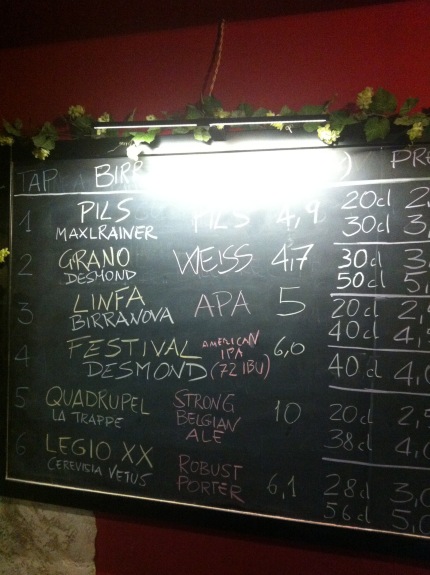 TAP BIRR ) PR
1 PILS PILS 4,9 20cl 2,
MAXLRAINER 30cl 3,
2 GRANO WEISS 4,7 30cl 3,
DESMOND 50cl 5,
3 LINFA APA 5 20cl 2,
BIRRANOVA 40cl 4,
4 FESTIVAL AMERICAN IPA 6,0 40cl 4,0
DESMOND (72 IBU)
5 QUADRUPEL STRONG 10 20cl 2,
LA TRAPPE BELGIAN 38cl 4,0
ALE
6 LEGIO XX ROBUST 6,1 28cl 3,0
CEREVISIA VETUS PORTER 56cl 5,0